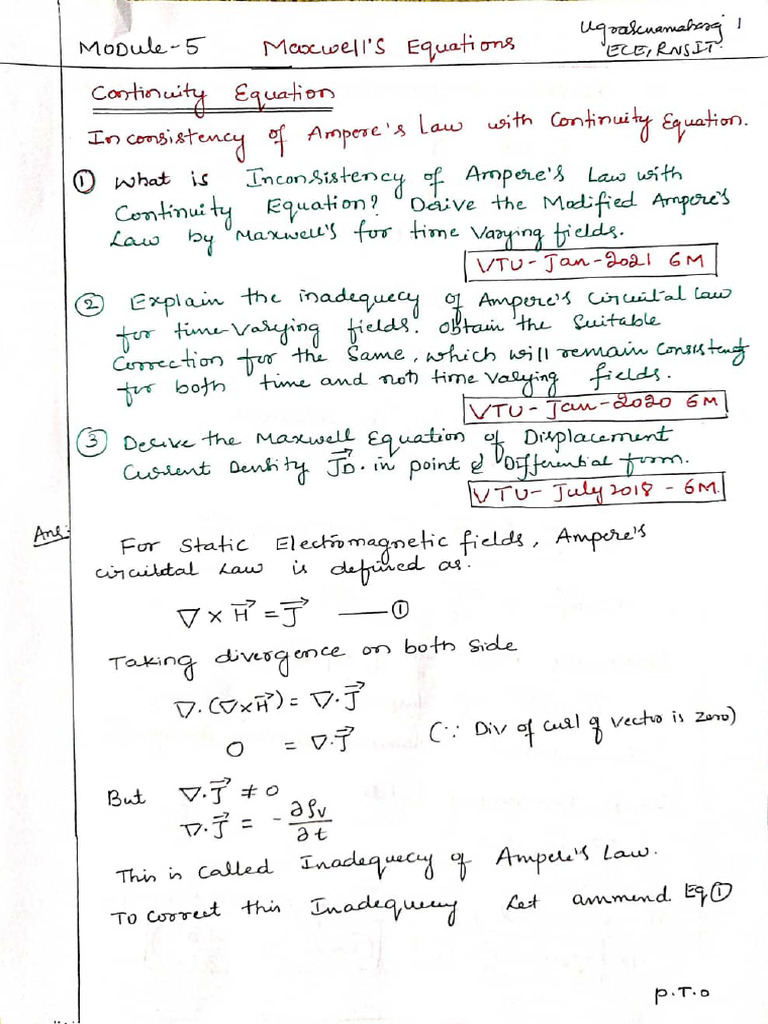 Module-5 Maxwell's Equations 1
ECE, RNSIT
Continuity Equation
Inconsistency of Ampere's Law with Continuity Equation.
① What is Inconsistency of Ampere's Law with
Continuity Equation? Derive the Modified Ampere's
Law by Maxwell's for time Varying fields.
VTU-Jan-2021 6M
② Explain the inadequecy of Ampere's circuital law
for time-Varying fields. Obtain the Suitable
Correction for the Same, which will remain Consistent
for both time and not time Varying fields.
VTU-Jan-2020 6M
③ Derive the Maxwell Equation of Displacement
Current Density J⃗D. in point & Differential form.
VTU-July 2018-6M
Ans:- For Static Electromagnetic fields, Ampere's
circuital Law is defined as.
∇ × H⃗ = J⃗ —— ①
Taking divergence on both side
∇.(∇×H⃗) = ∇.J⃗
0 = ∇.J⃗ (∵ Div of curl of vector is zero)
But ∇.J⃗ ≠ 0
∇.J⃗ = -∂ρv/∂t
This is called Inadequecy of Ampere's Law.
To correct this Inadequecy Let ammend Eq①
P.T.O